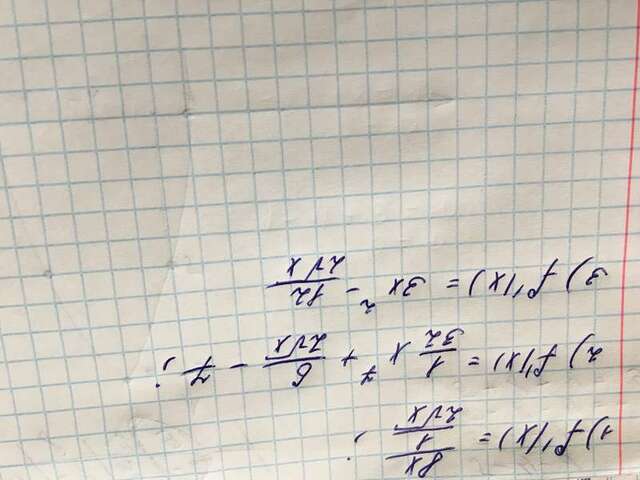 1) f'(x) = \frac{8x}{\frac{1}{2√x}} ;
2) f'(x) = \frac{1}{32} x^7 + \frac{6}{2√x} - 7 ;
3) f'(x) = 3x^2 - \frac{12}{2√x}